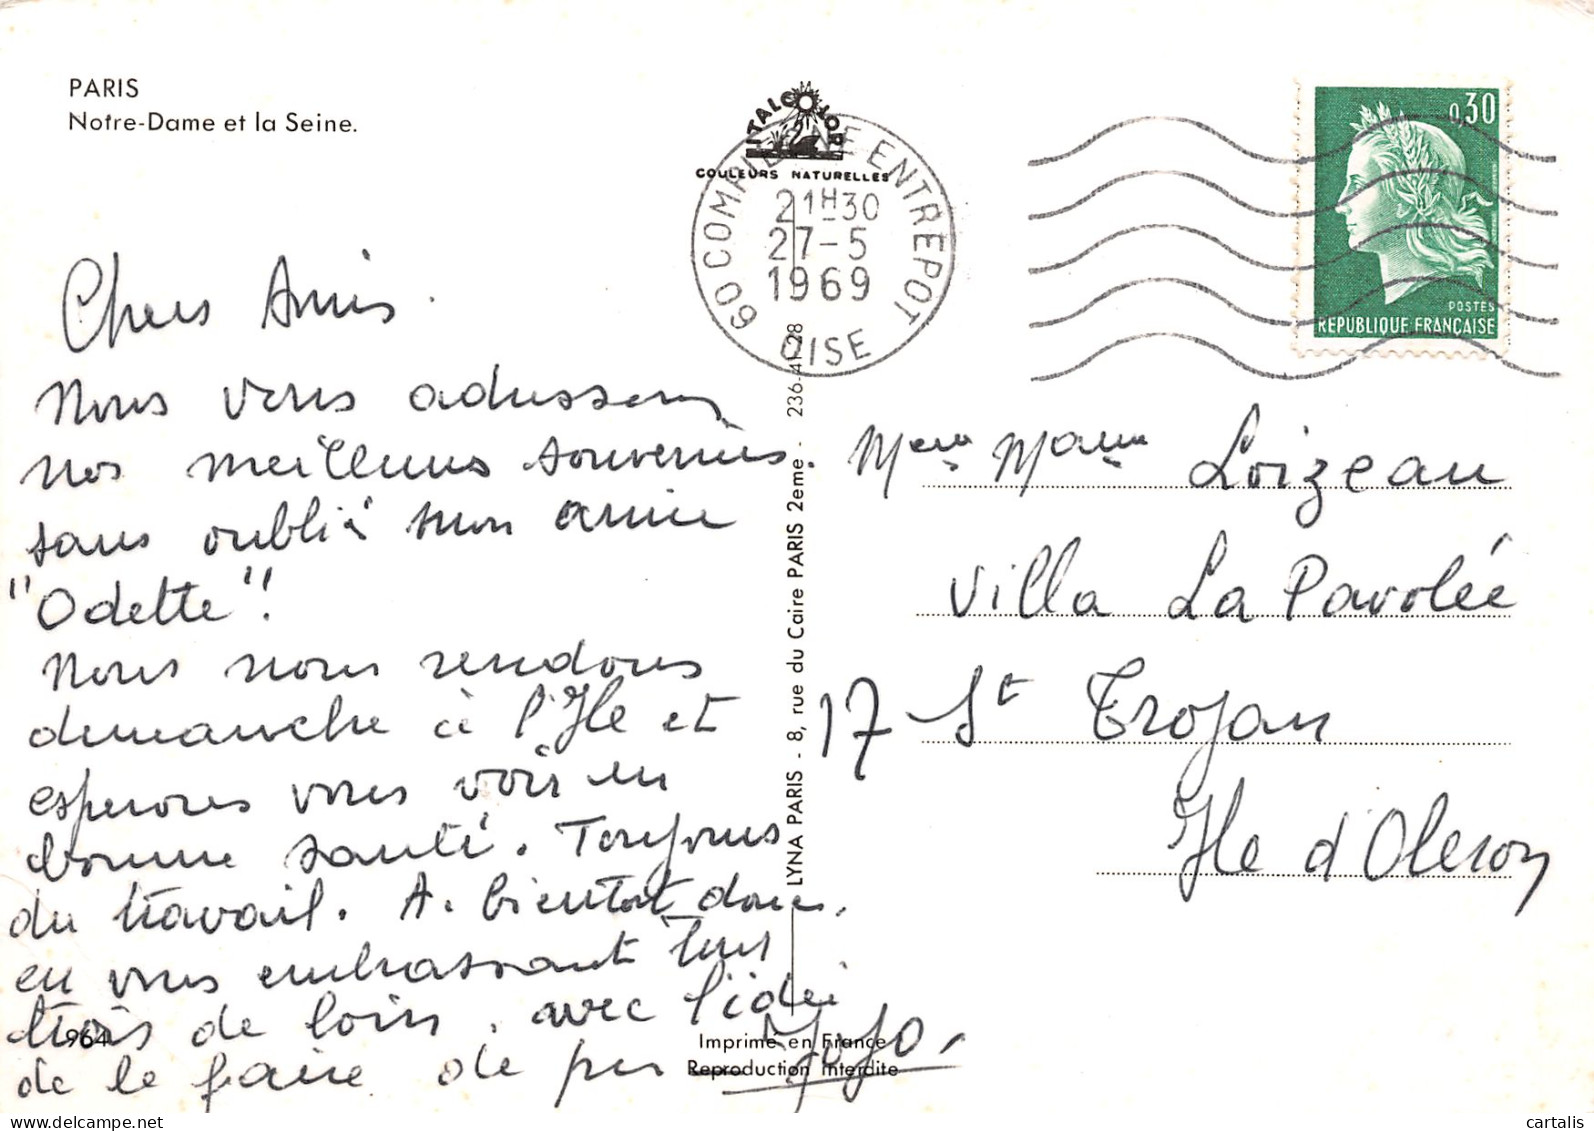 PARIS
Notre-Dame et la Seine.
ITALCOLOR
COULEURS NATURELLES
60 COMPIEGNE ENTREPOT
21H30
27-5
1969
OISE
0,30
POSTES
REPUBLIQUE FRANÇAISE
Chers Amis.
Nous vous adressons
nos meilleurs souvenirs.
sans oublier mon amie
"Odette"!
Nous nous rendons
dimanche à l'Ile et
esperons vous voir en
bonne santé. Toujours
du travail. A. bientôt donc,
en vous embrassant tous
trois de loin, avec l'idée
de le faire de près
Jojo.
964
LYNA PARIS - 8, rue du Caire PARIS 2eme - 236-41-28
Imprimé en France
Reproduction interdite
Mr Madame Loizeau
Villa La Pavolée
17 St Trojan
Ile d'Oleron
cartalis